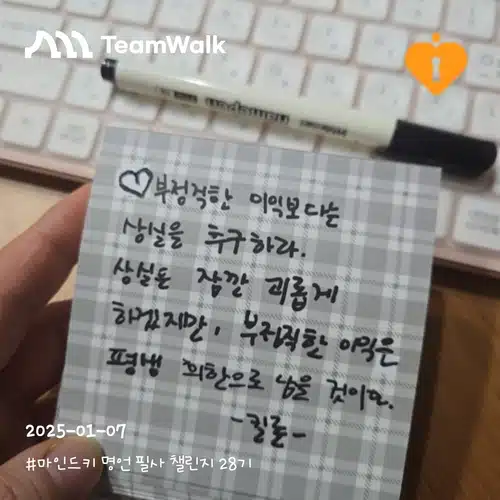 TeamWalk
♡부정직한 이익보다는
상실을 추구하라.
상실은 잠깐 괴롭게
하겠지만, 부정직한 이익은
평생 회한으로 남을 것이다.
-킬론-
2025-01-07
#마인드키 명언 필사 챌린지 28기